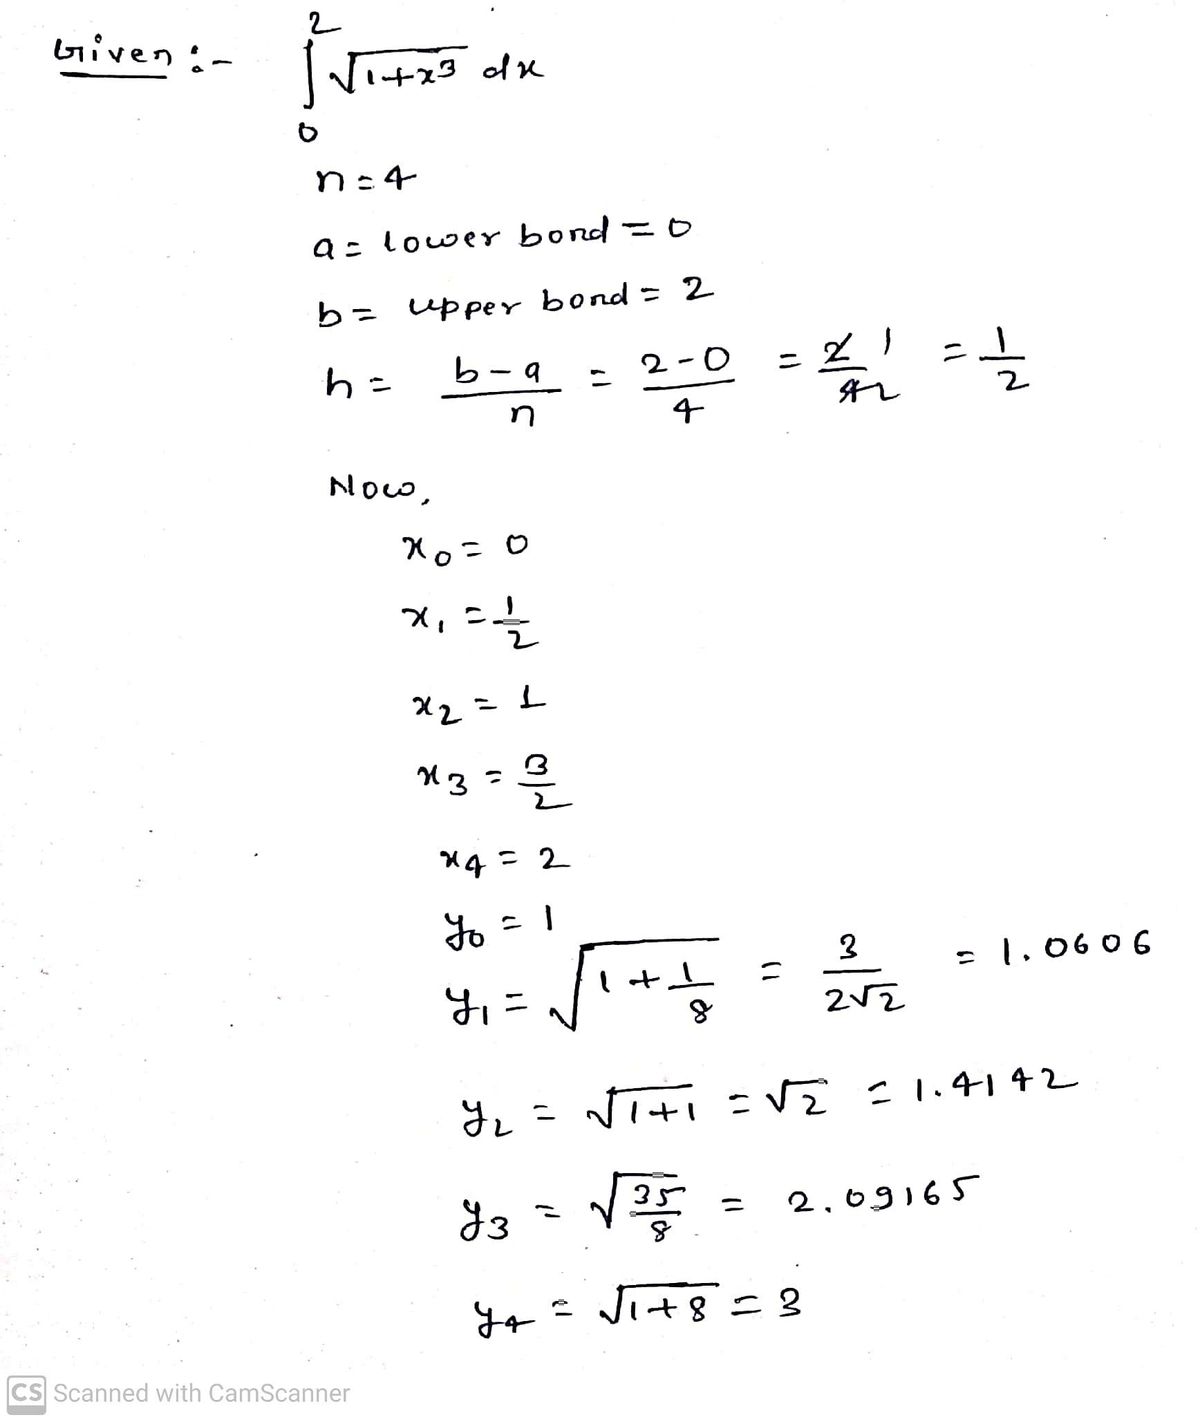 Given :- ∫₀² √1+x³ dx
n=4
a= lower bond = 0
b= upper bond = 2
h = b-a/n = 2-0/4 = 2/4 1/2 = 1/2
Now,
x₀ = 0
x₁ = 1/2
x₂ = 1
x₃ = 3/2
x₄ = 2
y₀ = 1
y₁ = √1+1/8 = 3/2√2 = 1.0606
y₂ = √1+1 = √2 = 1.4142
y₃ = √35/8 = 2.09165
y₄ = √1+8 = 3
CS Scanned with CamScanner